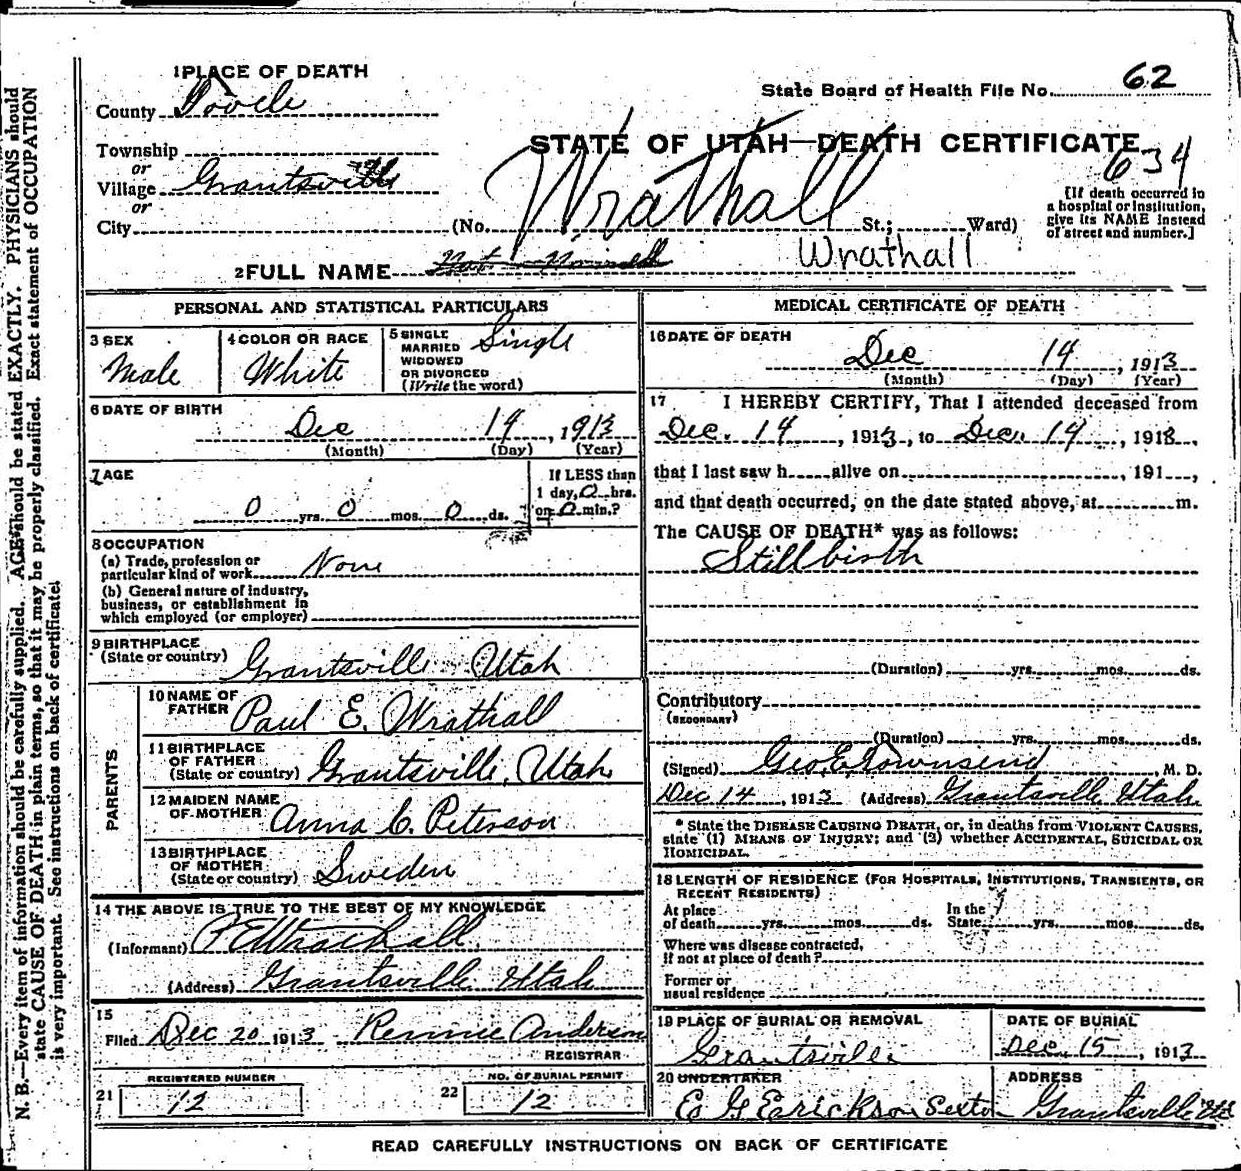 1 PLACE OF DEATH
County Tooele
State Board of Health File No. 62
STATE OF UTAH—DEATH CERTIFICATE
634
Township
or
Village Grantsville
or
City
(No. St.; Ward)
Wrathall
[If death occurred in
a hospital or institution,
give its NAME instead
of street and number.]
2 FULL NAME Not Named Wrathall
PERSONAL AND STATISTICAL PARTICULARS
3 SEX
Male
4 COLOR OR RACE
White
5 SINGLE
MARRIED
WIDOWED
OR DIVORCED
(Write the word)
Single
6 DATE OF BIRTH
Dec 14, 1913
(Month) (Day) (Year)
7 AGE
0 yrs. 0 mos. 0 ds.
If LESS than
1 day, 0 hrs.
or 0 min.?
8 OCCUPATION
(a) Trade, profession or
particular kind of work None
(b) General nature of industry,
business, or establishment in
which employed (or employer)
9 BIRTHPLACE
(State or country) Grantsville Utah
PARENTS
10 NAME OF
FATHER Paul E. Wrathall
11 BIRTHPLACE
OF FATHER
(State or country) Grantsville, Utah
12 MAIDEN NAME
OF MOTHER Anna C. Peterson
13 BIRTHPLACE
OF MOTHER
(State or country) Sweden
14 THE ABOVE IS TRUE TO THE BEST OF MY KNOWLEDGE
(Informant) P E Wrathall
(Address) Grantsville Utah
15
Filed Dec 20 1913 Rennie Anderson
REGISTRAR
REGISTERED NUMBER
21 12
NO. OF BURIAL PERMIT
22 12
MEDICAL CERTIFICATE OF DEATH
16 DATE OF DEATH
Dec 14, 1913
(Month) (Day) (Year)
17 I HEREBY CERTIFY, That I attended deceased from
Dec. 14, 1913, to Dec. 14, 1913,
that I last saw h alive on , 191 ,
and that death occurred, on the date stated above, at m.
The CAUSE OF DEATH* was as follows:
Stillbirth
(Duration) yrs. mos. ds.
Contributory
(SECONDARY)
(Duration) yrs. mos. ds.
(Signed) Geo. E. Townsend, M. D.
Dec 14, 1913 (Address) Grantsville Utah
* State the DISEASE CAUSING DEATH, or, in deaths from VIOLENT CAUSES,
state (1) MEANS OF INJURY; and (2) whether ACCIDENTAL, SUICIDAL OR
HOMICIDAL.
18 LENGTH OF RESIDENCE (FOR HOSPITALS, INSTITUTIONS, TRANSIENTS, OR
RECENT RESIDENTS)
At place
of death yrs. mos. ds.
In the
State yrs. mos. ds.
Where was disease contracted,
if not at place of death?
Former or
usual residence
19 PLACE OF BURIAL OR REMOVAL
Grantsville
DATE OF BURIAL
Dec. 15, 1913
20 UNDERTAKER
E G Erickson Sexton
ADDRESS
Grantsville Utah
READ CAREFULLY INSTRUCTIONS ON BACK OF CERTIFICATE
N. B.—Every item of information should be carefully supplied. AGE should be stated EXACTLY. PHYSICIANS should
state CAUSE OF DEATH in plain terms, so that it may be properly classified. Exact statement of OCCUPATION
is very important. See instructions on back of certificate.